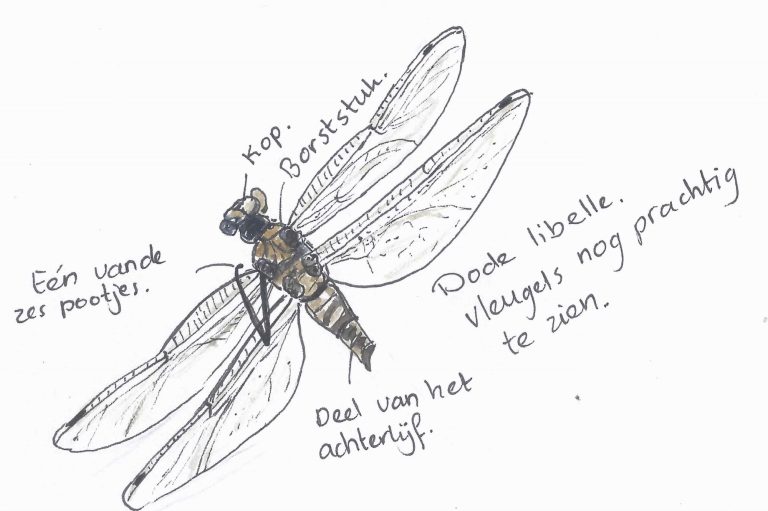 Kop.
Borststuk.
Eén van de
zes pootjes.
Dode libelle.
vleugels nog prachtig
te zien.
Deel van het
achterlijf.